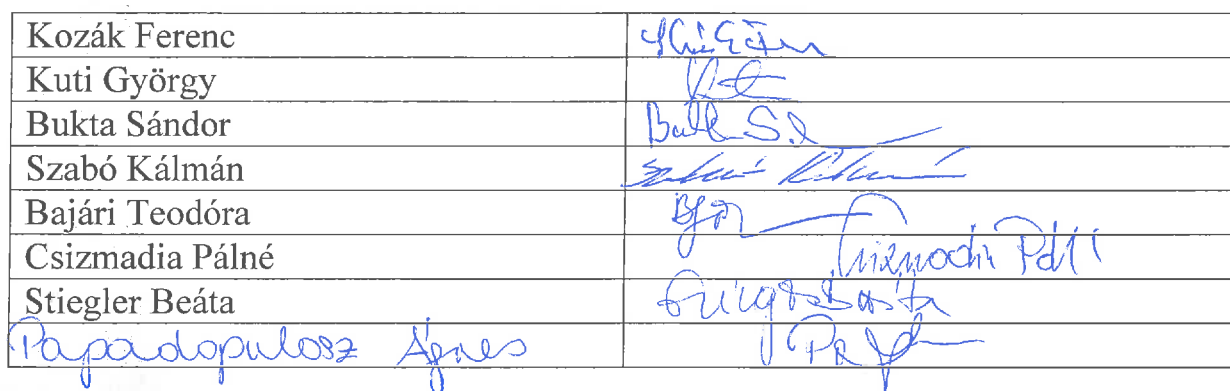 Kozák Ferenc
Kuti György
Bukta Sándor
Szabó Kálmán Szabó Kálmán
Bajári Teodóra
Csizmadia Pálné Csizmadia Pál
Stiegler Beáta Stiegler Beáta
Papadopulosz Ágnes